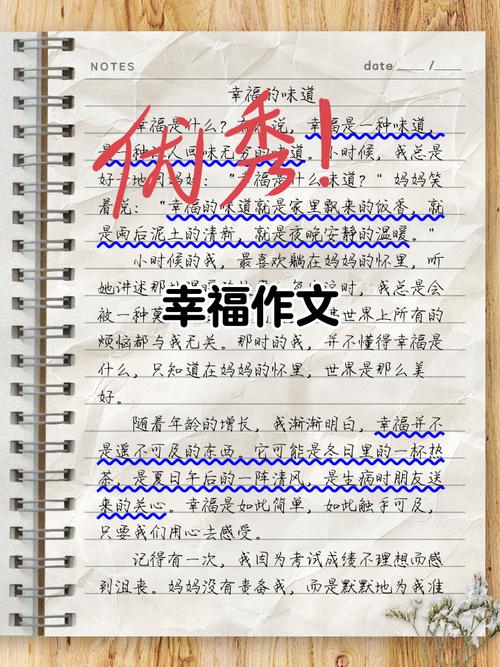 NOTES date /
幸福的味道
优秀!
幸福是什么?说,幸福是一种味道,
是一种人回味无穷的味道。小时候,我总是
好奇地问妈妈:"幸福是什么味道?"妈妈笑
着说:"幸福的味道就是家里飘来的饭香,就
是雨后泥土的清新,就是夜晚安静的温暖。"
小时候的我,最喜欢躺在妈妈的怀里,听
她讲述那时,我总是会
幸福作文
被一种世界上所有的
烦恼都与我无关。那时的我,并不懂得幸福是
什么,只知道在妈妈的怀里,世界是那么美
好。
随着年龄的增长,我渐渐明白,幸福并不
是遥不可及的东西。它可能是冬日里的一杯热
茶,是夏日午后的一阵清风,是生病时朋友送
来的关心。幸福是如此简单,如此触手可及,
只要我们用心去感受。
记得有一次,我因为考试成绩不理想而感
到沮丧。妈妈没有责备我,而是默默地为我准